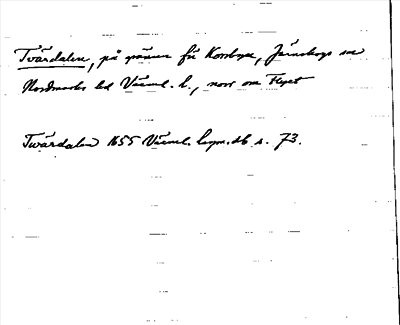 Tvärdalen, på gränsen för Korsbyn, Järnskogs sn
Nordmarks hd Värml. l., norr om Flyet
Twärdalen 1655 Värml. lagm. db s. 73.